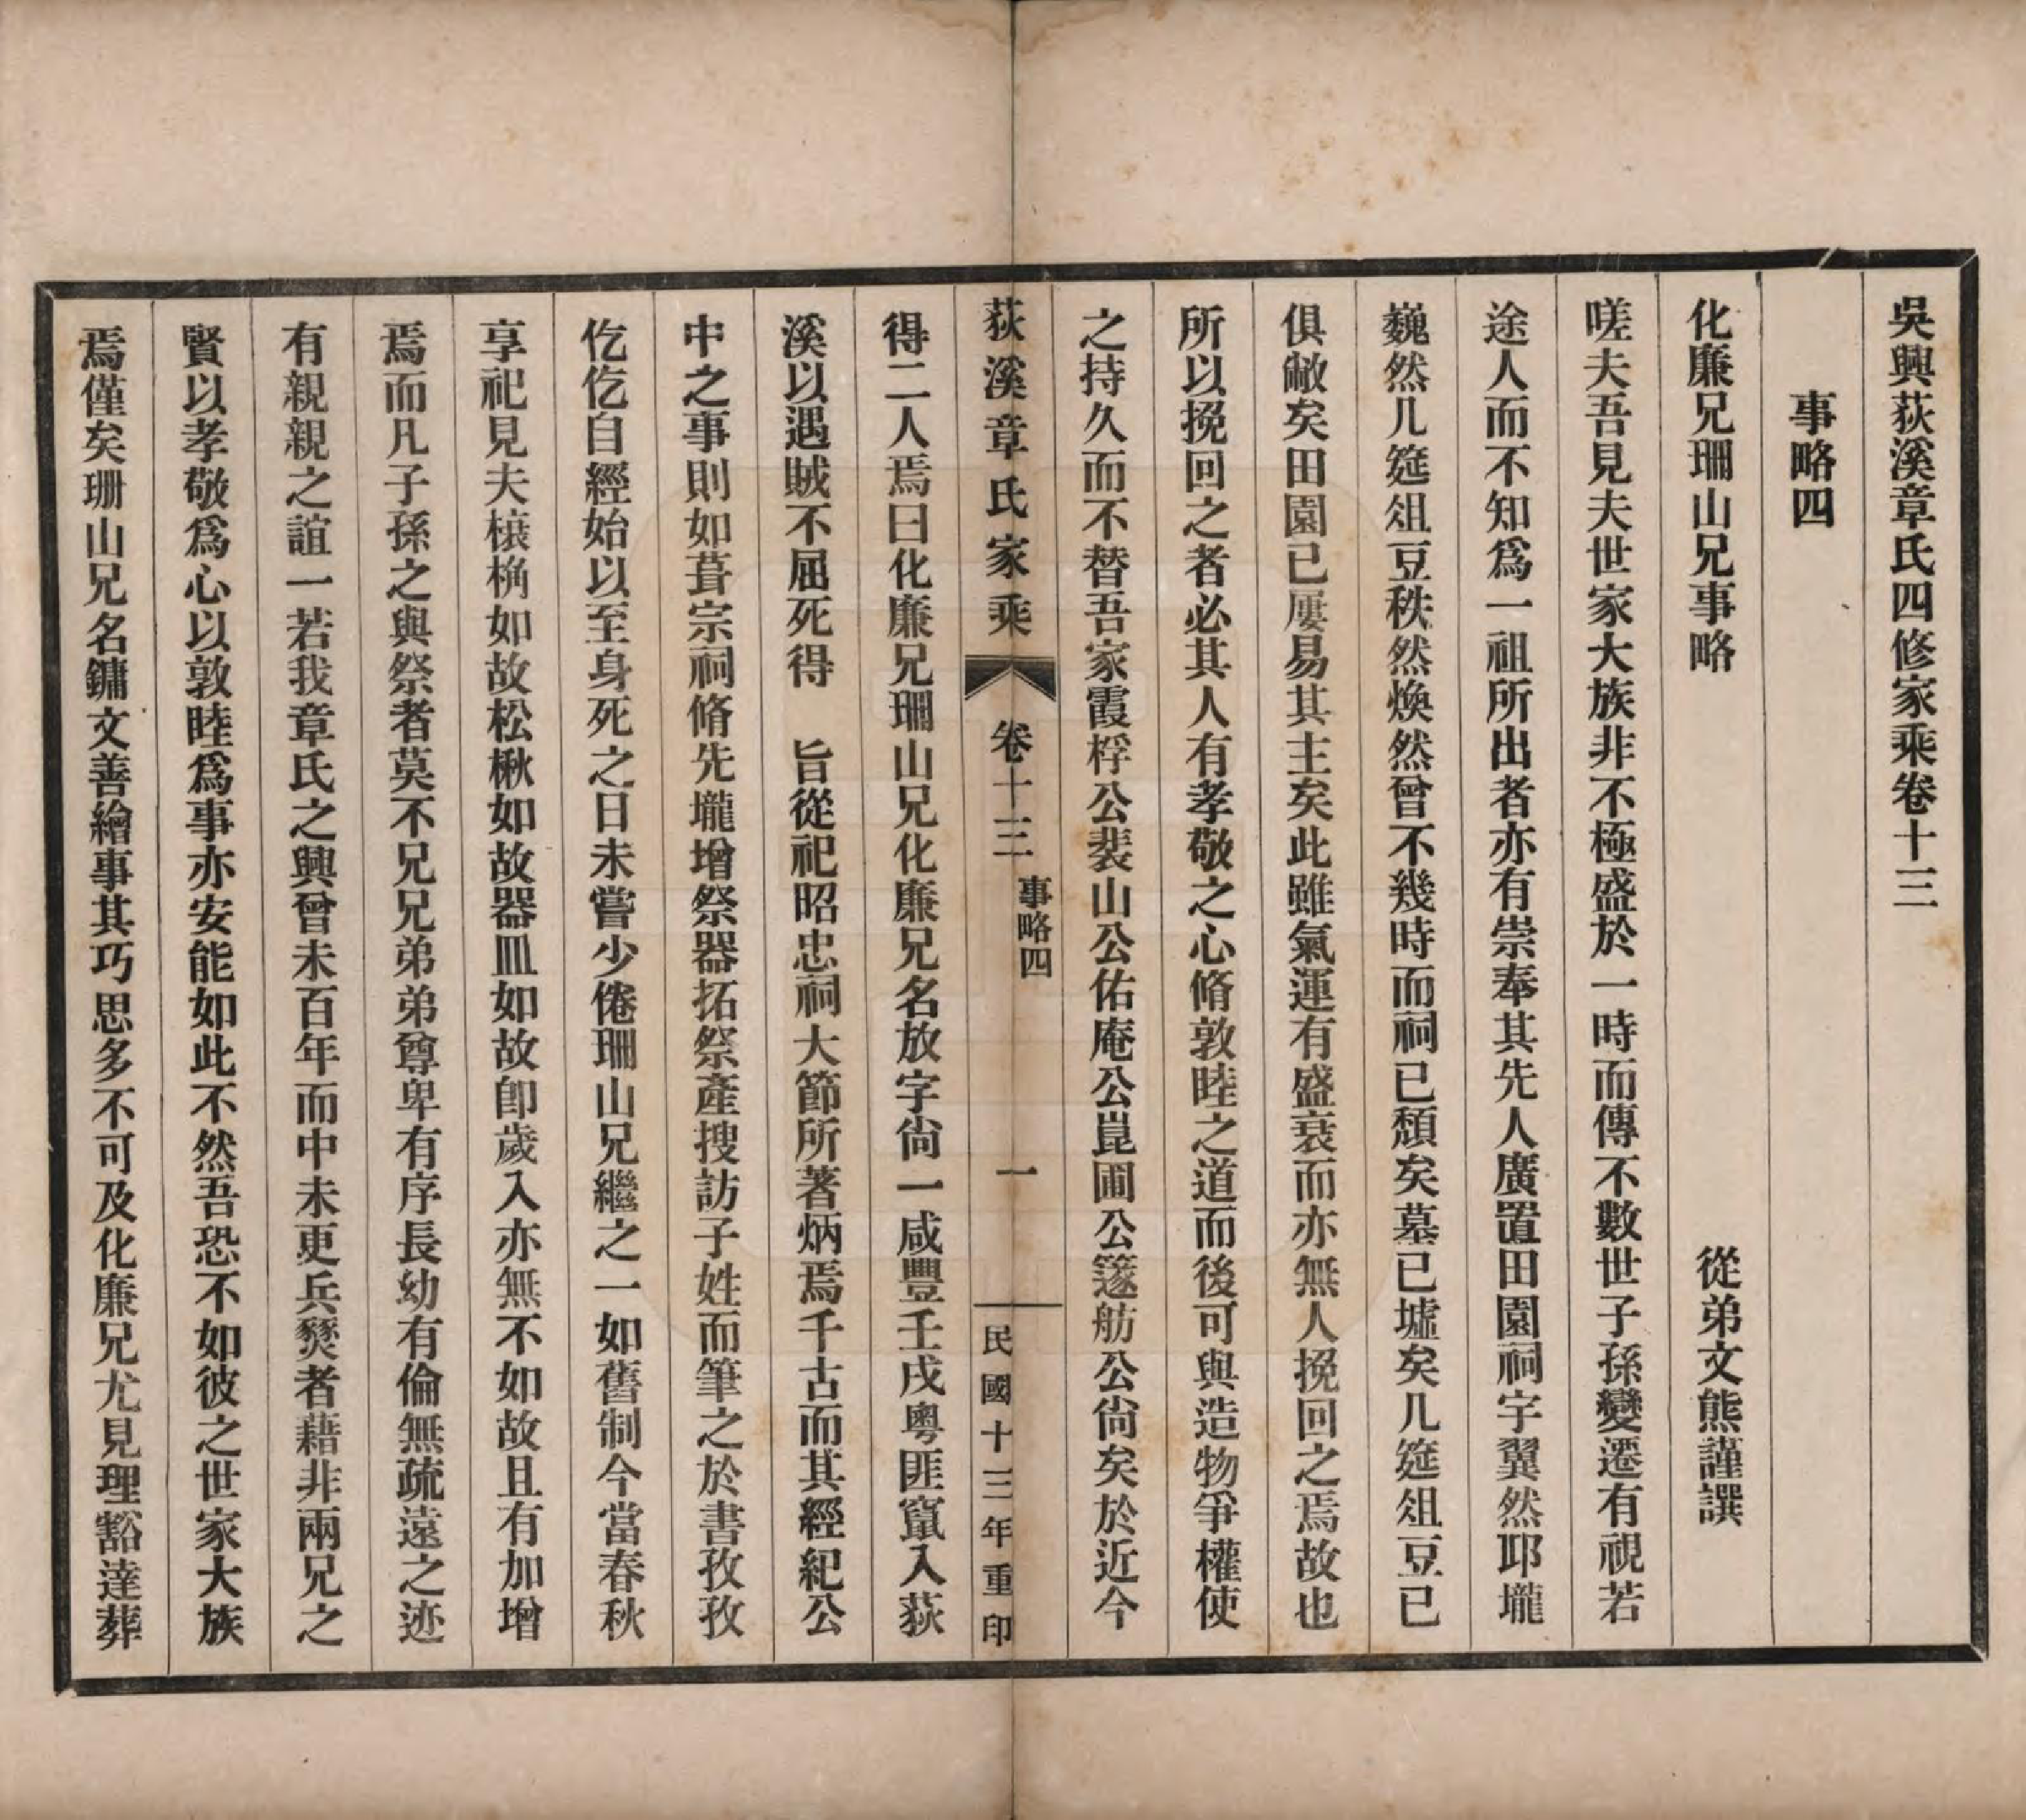 吳興荻溪章氏四修家乘卷十三
事略四
化廉兄珊山兄事略
從弟文熊謹譔
嗟夫吾見夫世家大族非不極盛於一時而傳不數世子孫變遷有視若
途人而不知爲一祖所出者亦有崇奉其先人廣置田園祠宇翼然邱壠
巍然几筵俎豆秩然煥然曾不幾時而祠已頹矣墓已墟矣几筵俎豆已
俱敝矣田園已屢易其主矣此雖氣運有盛衰而亦無人挽回之焉故也
所以挽回之者必其人有孝敬之心脩敦睦之道而後可與造物爭權使
之持久而不替吾家霞桴公裴山公佑庵公崑圃公籧舫公尙矣於近今
荻溪章氏家乘
卷十三
事略四
一
民國十三年重印
得二人焉曰化廉兄珊山兄化廉兄名放字尙一咸豐壬戌粵匪竄入荻
溪以遇賊不屈死得　旨從祀昭忠祠大節所著炳焉千古而其經紀公
中之事則如葺宗祠脩先壠增祭器拓祭產搜訪子姓而筆之於書孜孜
仡仡自經始以至身死之日未嘗少倦珊山兄繼之一如舊制今當春秋
享祀見夫榱桷如故松楸如故器皿如故卽歲入亦無不如故且有加增
焉而凡子孫之與祭者莫不兄兄弟弟尊卑有序長幼有倫無疏遠之迹
有親親之誼一若我章氏之興曾未百年而中未更兵燹者藉非兩兄之
賢以孝敬爲心以敦睦爲事亦安能如此不然吾恐不如彼之世家大族
焉僅矣珊山兄名鏞文善繪事其巧思多不可及化廉兄尤見理豁達葬